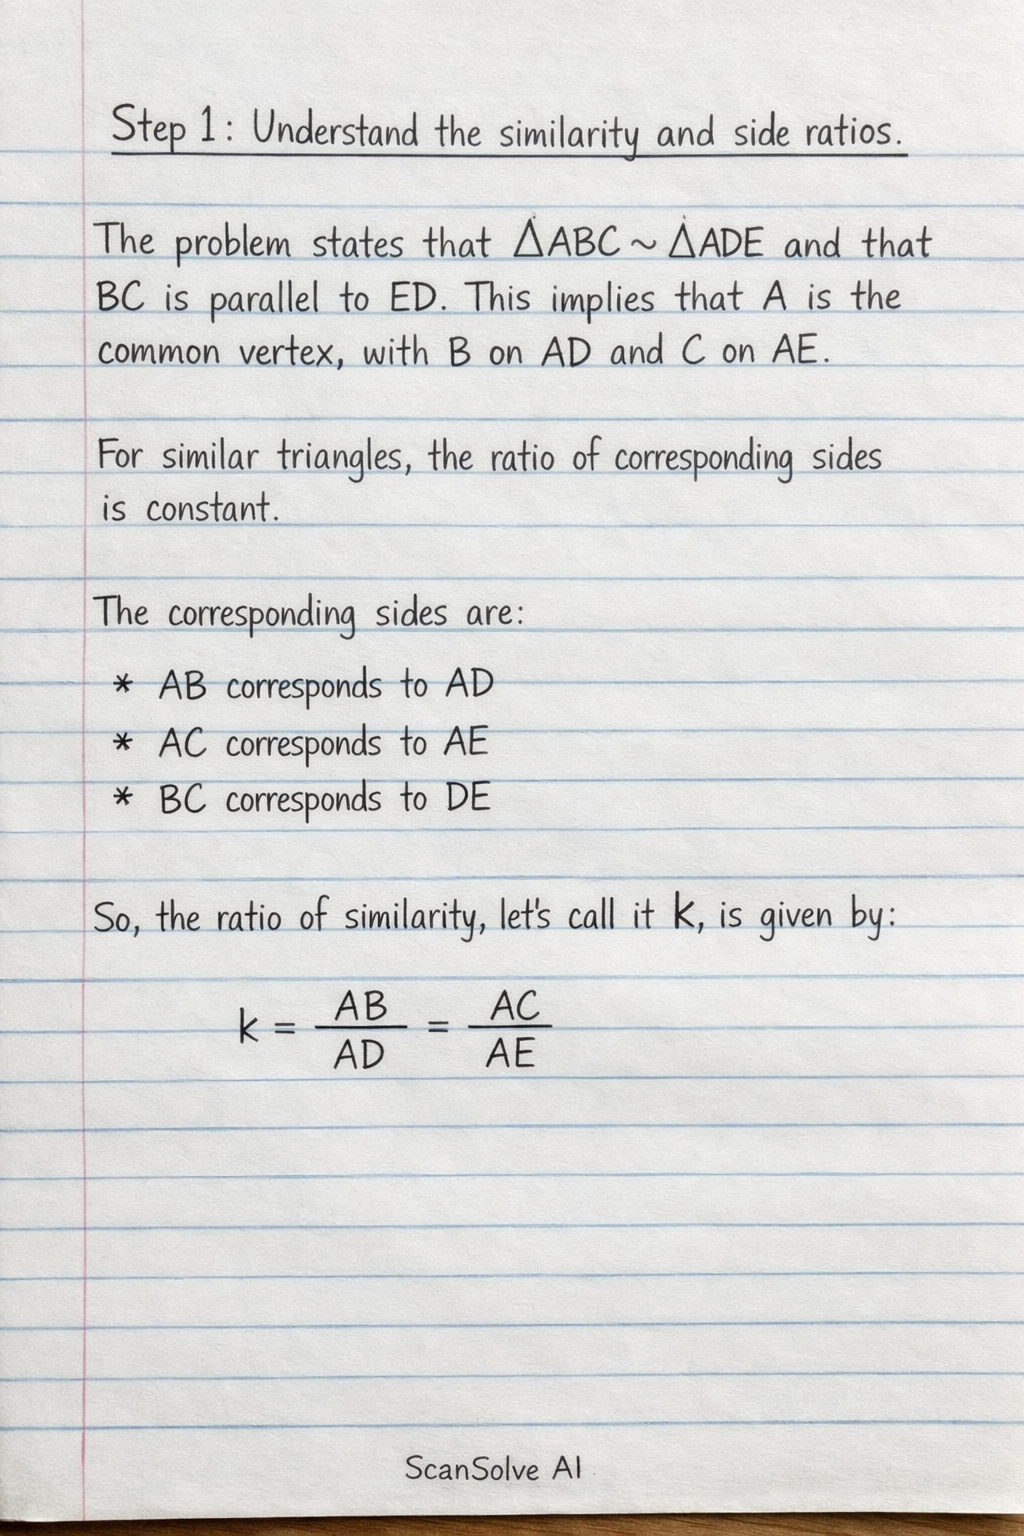 Step 1: Understand the similarity and side ratios.
The problem states that ΔABC ~ ΔADE and that
BC is parallel to ED. This implies that A is the
common vertex, with B on AD and C on AE.
For similar triangles, the ratio of corresponding sides
is constant.
The corresponding sides are:
* AB corresponds to AD
* AC corresponds to AE
* BC corresponds to DE
So, the ratio of similarity, let's call it k, is given by:
k = AB/AD = AC/AE
ScanSolve AI